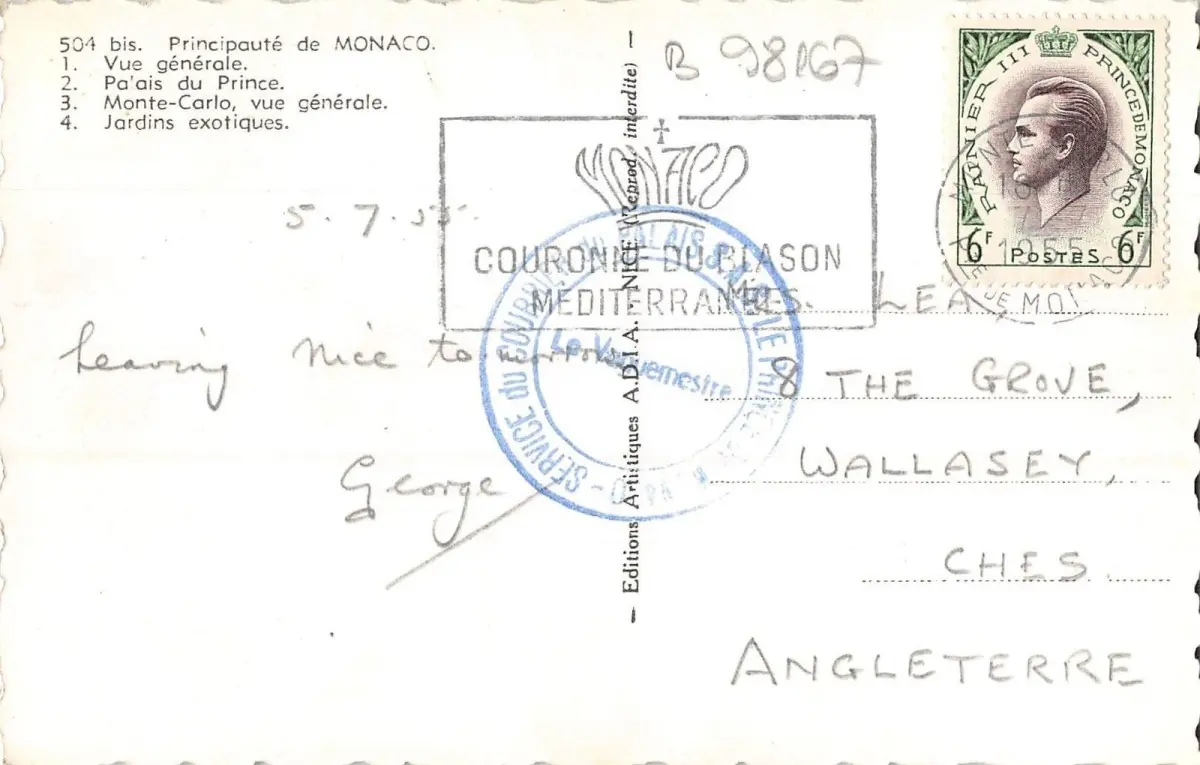 504 bis. Principauté de MONACO.
1. Vue générale.
2. Pa'ais du Prince.
3. Monte-Carlo, vue générale.
4. Jardins exotiques.
B 98167
RAINIER III PRINCE DE MONACO
6F POSTES 6F
1955
MONACO
COURONNE DU BLASON
MÉDITERRANÉES
5.7.55.
leaving Nice to morrow
George
SERVICE du COURRIER du PALAIS S.A.S. LE PRINCE
Le Vaguemestre
— Editions Artistiques A.D.I.A. - NICE (Reprod. interdite) —
MRS. LEA,
8 THE GROVE,
WALLASEY,
CHES.
ANGLETERRE